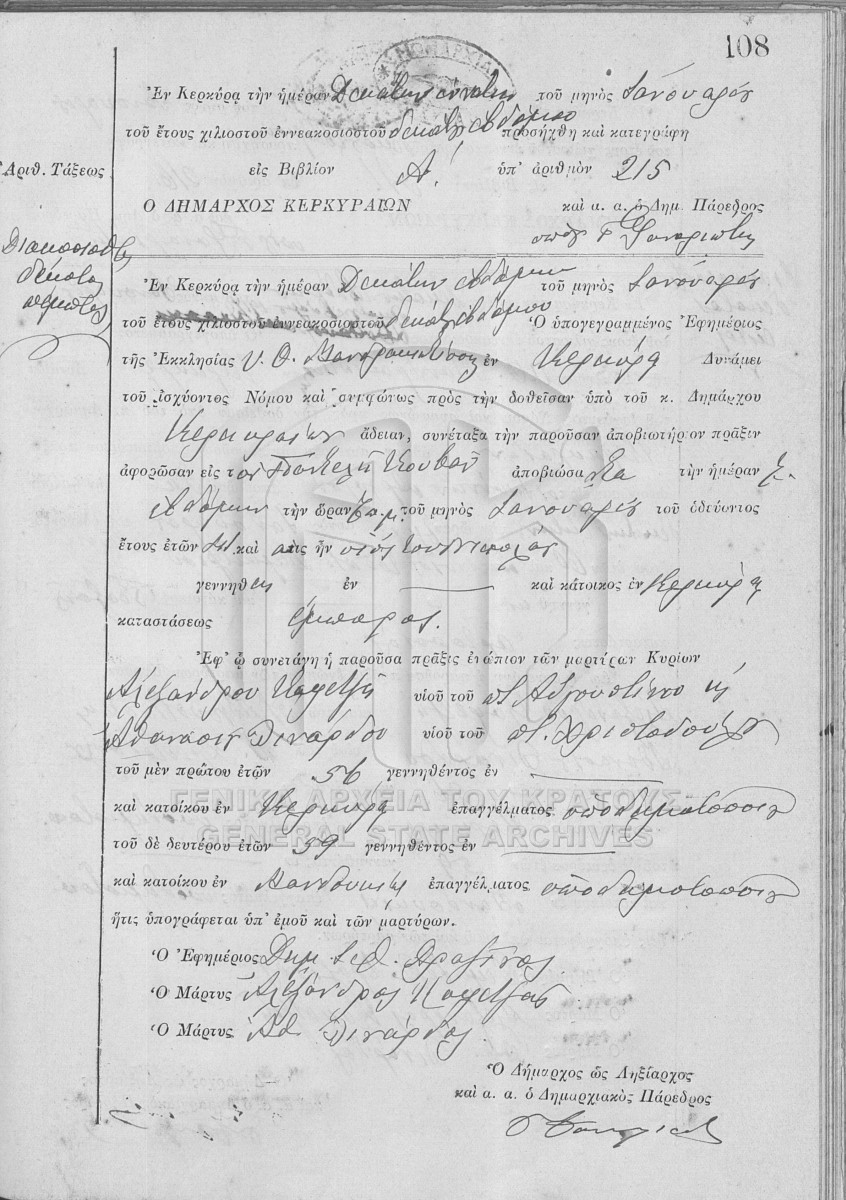 108
Ἐν Κερκύρᾳ τὴν ἡμέραν Δεκάτην ἐννάτην τοῦ μηνὸς Ἰανουαρίου
τοῦ ἔτους χιλιοστοῦ ἐννεακοσιοστοῦ δεκάτου ἑβδόμου προσήχθη καὶ κατεγράφη
Ἀριθ. Τάξεως εἰς Βιβλίον Α! ὑπ' ἀριθμὸν 215
Ο ΔΗΜΑΡΧΟΣ ΚΕΡΚΥΡΑΙΩΝ καὶ α. α. ὁ Δημ. Πάρεδρος
Διακοσιοστὴ
δεκάτη
πέμπτη
Ἐν Κερκύρᾳ τὴν ἡμέραν Δεκάτην ἑβδόμην τοῦ μηνὸς Ἰανουαρίου
τοῦ ἔτους χιλιοστοῦ ἐννεακοσιοστοῦ δεκάτου ἑβδόμου Ὁ ὑπογεγραμμένος Ἐφημέριος
τῆς Ἐκκλησίας Υ. Θ. Μανδρακιωτίσσης ἐν Κερκύρᾳ Δυνάμει
τοῦ ἰσχύοντος Νόμου καὶ συμφώνως πρὸς τὴν δοθεῖσαν ὑπὸ τοῦ κ. Δημάρχου
Κερκυραίων ἄδειαν, συνέταξα τὴν παροῦσαν ἀποβιωτήριον πρᾶξιν
ἀφορῶσαν εἰς τὸν Παντελῆ ἀποβιώσαντα τὴν ἡμέραν
ἑβδόμην τὴν ὥραν π.μ. τοῦ μηνὸς Ἰανουαρίου τοῦ ὁδεύοντος
ἔτους ἐτῶν καὶ ὅστις ἦν υἱὸς τοῦ Νικολάου
γεννηθεὶς ἐν — καὶ κάτοικος ἐν Κερκύρᾳ
καταστάσεως ἔμπορος.
Ἐφ' ᾧ συνετάγη ἡ παροῦσα πρᾶξις ἐνώπιον τῶν μαρτύρων Κυρίων
Ἀλεξάνδρου Καφετζῆ υἱοῦ τοῦ π. Αὐγουστίνου κ
Ἀθανασίου Πινάρδου υἱοῦ τοῦ π. Χριστοδούλου
τοῦ μὲν πρώτου ἐτῶν 56 γεννηθέντος ἐν —
καὶ κατοίκου ἐν Κερκύρᾳ ἐπαγγέλματος ὑποδηματοποιοῦ
ΓΕΝΙΚΑ ΑΡΧΕΙΑ ΤΟΥ ΚΡΑΤΟΥΣ
GENERAL STATE ARCHIVES
τοῦ δὲ δευτέρου ἐτῶν 39 γεννηθέντος ἐν —
καὶ κατοίκου ἐν Μανδουκίῳ ἐπαγγέλματος ὑποδηματοποιοῦ
ἥτις ὑπογράφεται ὑπ' ἐμοῦ καὶ τῶν μαρτύρων.
Ὁ Ἐφημέριος Δημ.
Ὁ Μάρτυς Ἀλέξανδρος Καφετζῆς
Ὁ Μάρτυς Ἀθ. Πινάρδος
Ὁ Δήμαρχος ὡς Ληξίαρχος
καὶ α. α. ὁ Δημαρχιακὸς Πάρεδρος